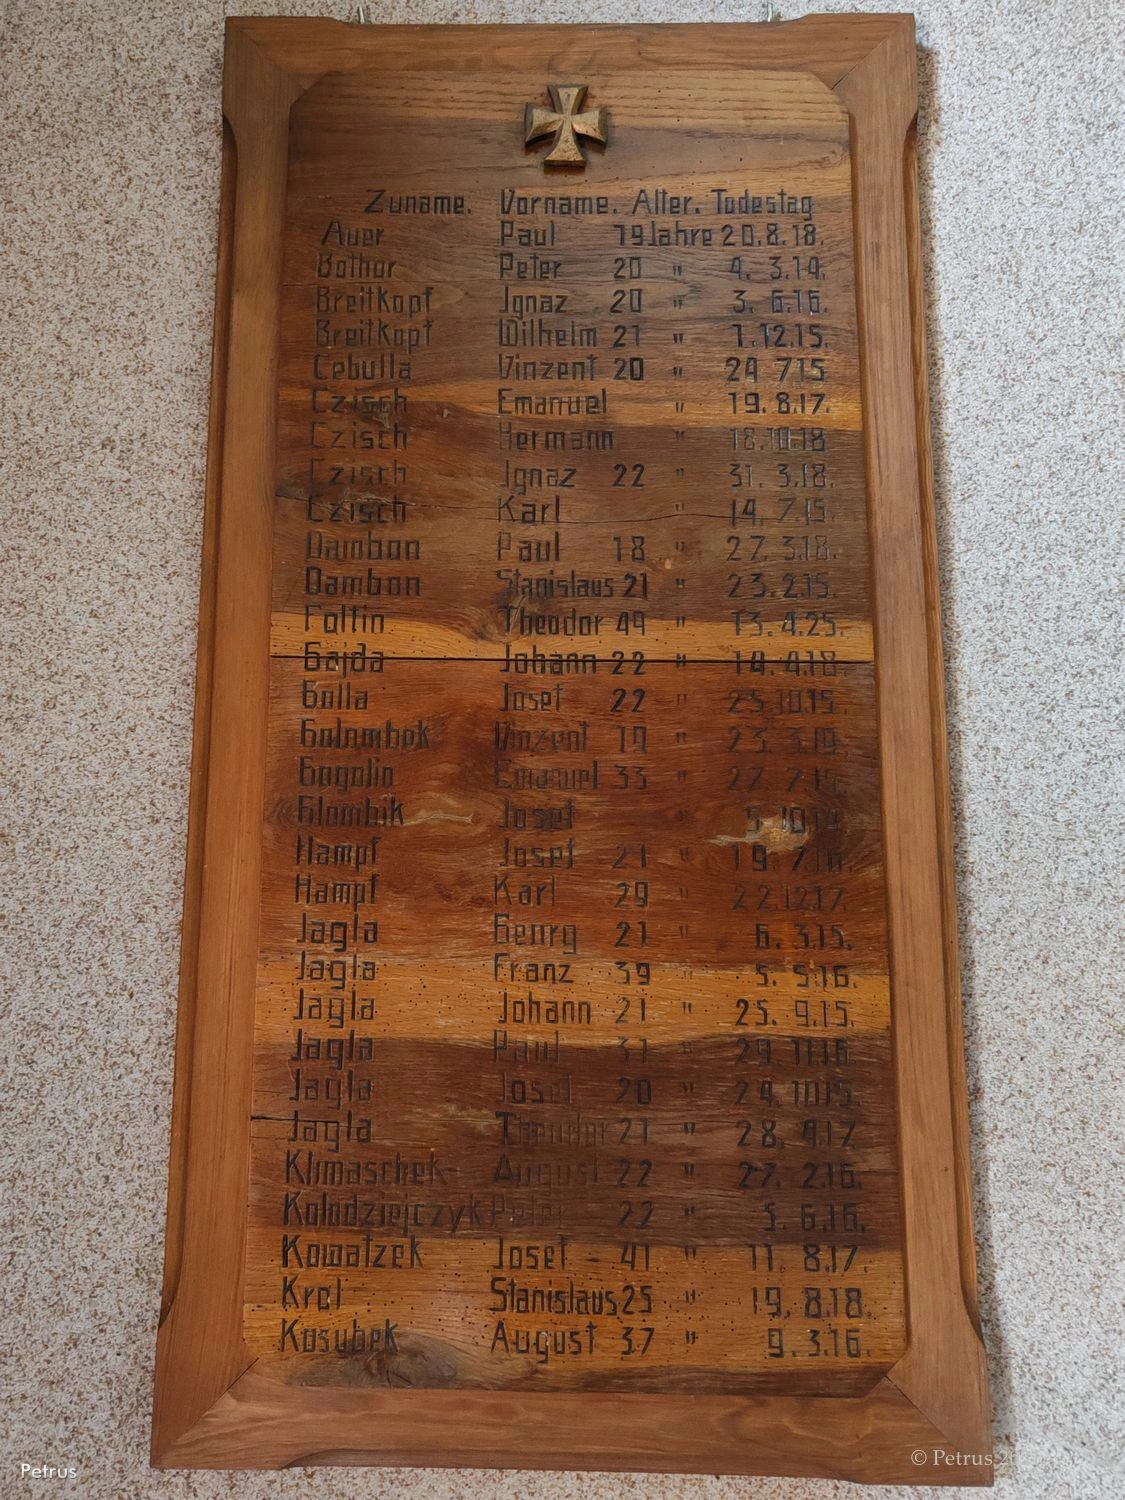 Zuname. Vorname. Alter. Todestag
Auer Paul 19 Jahre 20.8.18.
Bothur Peter 20 " 4. 3.14.
Breitkopf Jgnaz 20 " 3. 6.16.
Breitkopf Wilhelm 21 " 1.12.15.
Cebulla Vinzent 20 " 24 7 15
Czisch Emanuel " 19. 8.17.
Czisch Hermann " 18.10.18
Czisch Jgnaz 22 " 31. 3.18.
Czisch Karl " 14. 7.15.
Dambon Paul 18 " 27. 3.18.
Dambon Stanislaus 21 " 23. 2.15.
Foltin Theodor 49 " 13. 4.25.
Gajda Johann 22 " 14. 4.18.
Golla Josef 22 " 25.10.15.
Golombek Vinzent 19 " 23. 3.19.
Gogolin Emanuel 33 " 27. 7.15.
Glombik Josef 5.10.14
Hampf Josef 21 " 19. 7.16.
Hampf Karl 29 " 22.12.17.
Jagla Georg 21 " 6. 3.15.
Jagla Franz 39 " 5. 5.16.
Jagla Johann 21 " 25. 9.15.
Jagla Paul 31 " 29. 11.16
Jagla Josef 20 " 24. 10.15.
Jagla Theodor 21 " 28. 4.17
Klimaschek August 22 " 27. 2.16.
Kolodziejczyk Peter 22 " 5. 6.16.
Kowatzek Josef - 41 " 11. 8.17.
Krel Stanislaus 25 " 19. 8.18.
Kosubek August 37 " 9. 3.16.
Petrus
© Petrus